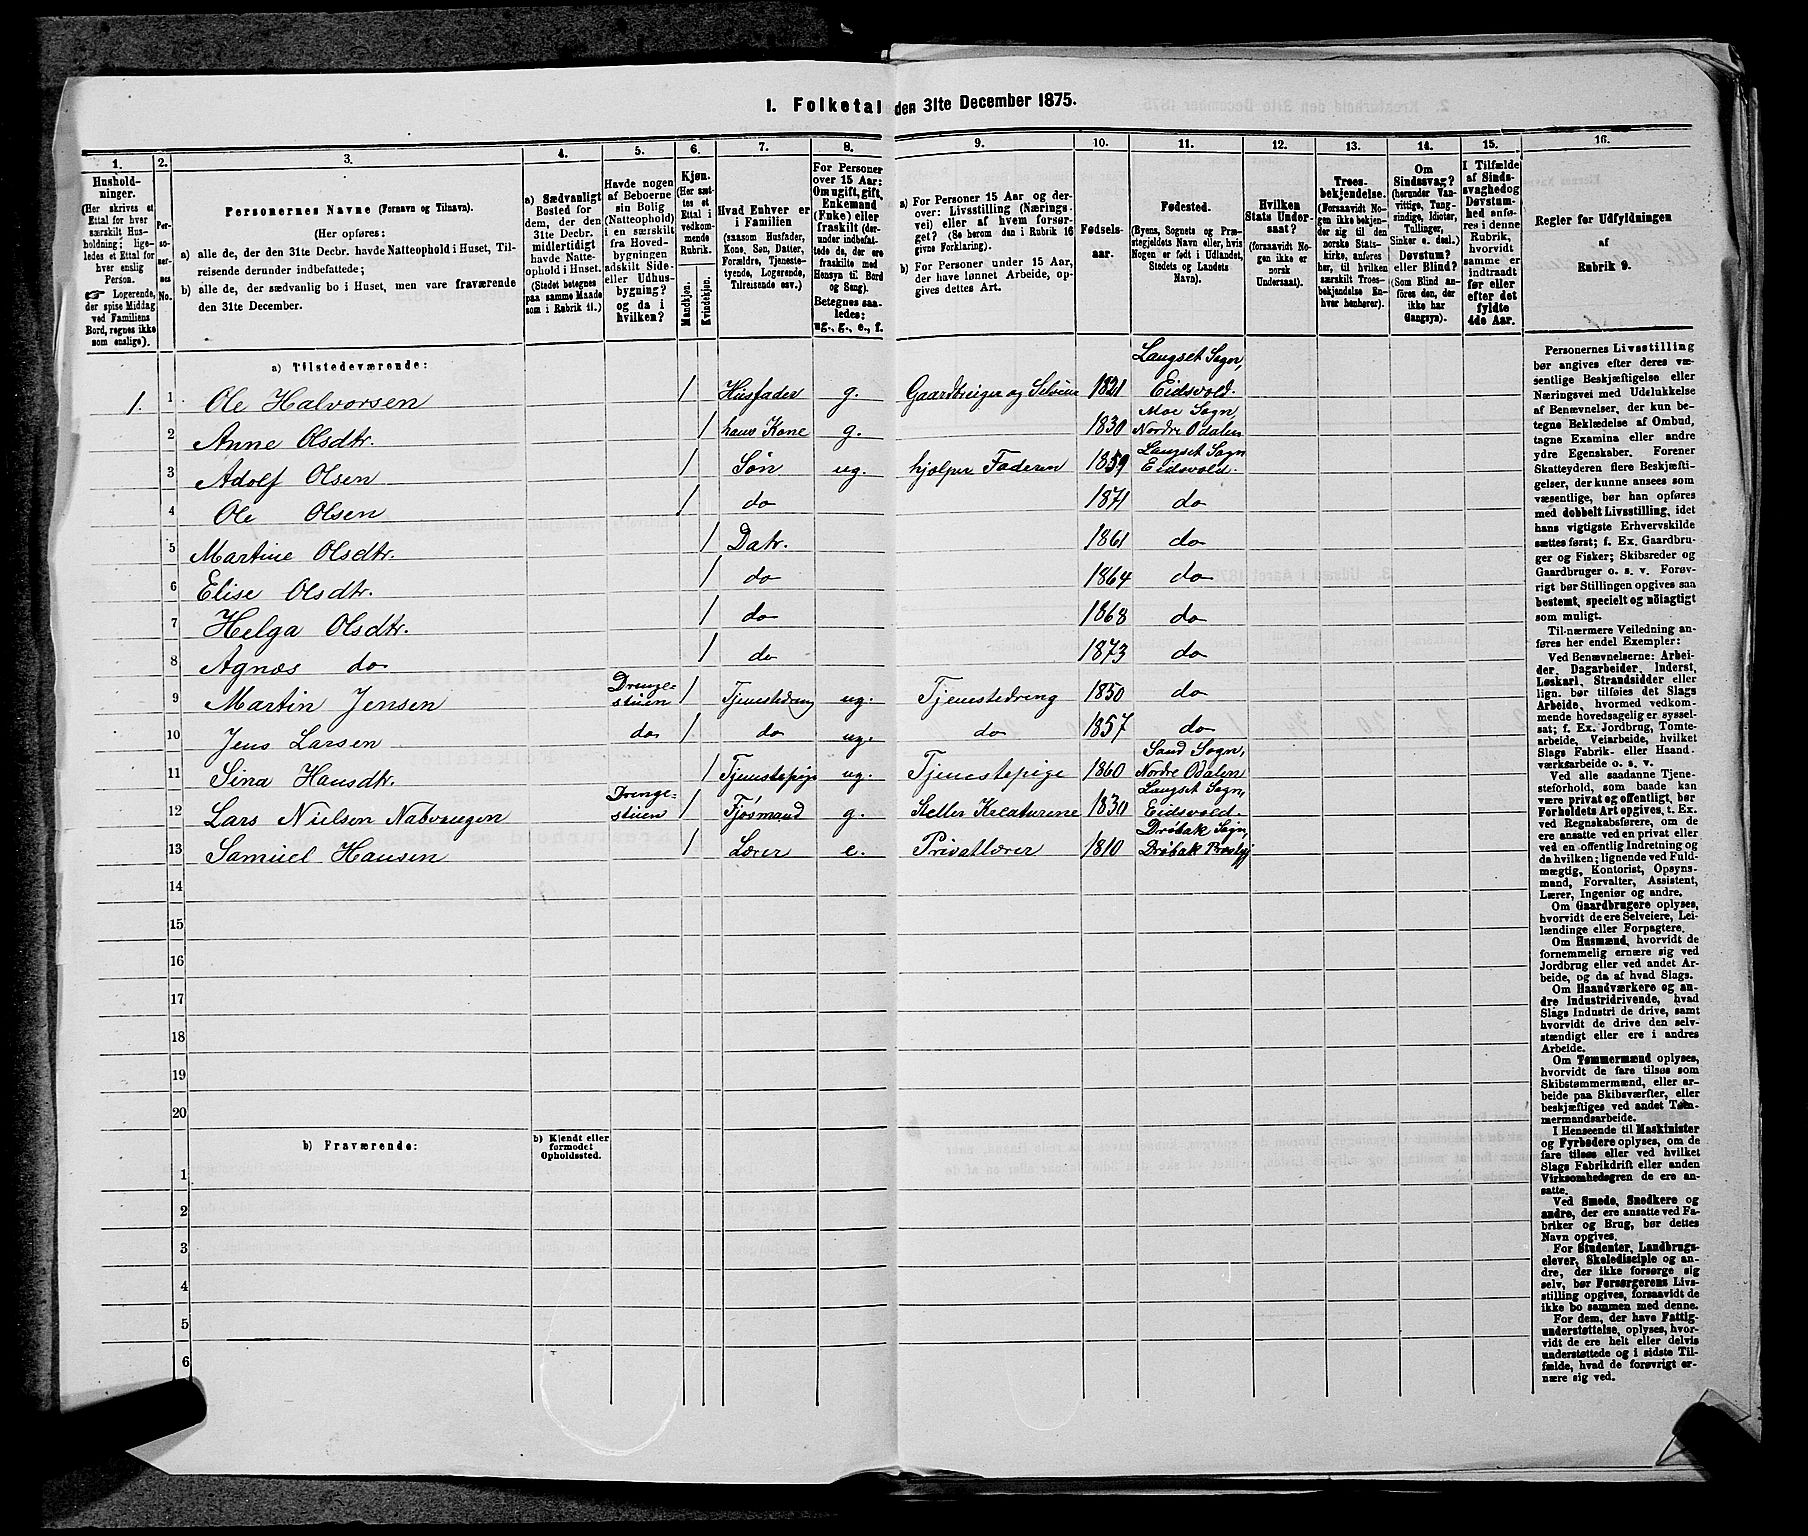 1. Folketal den 31te December 1875.
1. 2. 3. 4. 5. 6. 7. 8. 9. 10. 11. 12. 13. 14. 15. 16.
Hushold-
ninger.
(Her skrives et
Ettal for hver
særskilt Hus-
holdning; lige-
ledes et Ettal for
hver enslig
Person.
☞ Logerende,
der spise Middag
ved Familiens
Bord, regnes ikke
som enslige).
Per-
so-
ner-
nes
No.
Personernes Navne (Fornavn og Tilnavn).
(Her opføres:
a) alle de, der den 31te Decbr. havde Natteophold i Huset, Til-
reisende derunder indbefattede;
b) alle de, der sædvanlig bo i Huset, men vare fraværende
den 31te December.
a) Sædvanligt
Bosted for
dem, der den
31te Decbr.
midlertidigt
havde Natte-
ophold i Huset.
(Stedet betegnes
paa samme Maade
som i Rubrik 11.)
Havde nogen
af Beboerne
sin Bolig
(Natteophold)
i en særskilt
fra Hoved-
bygningen
adskilt Side-
eller Udhus-
bygning?
og da i
hvilken?
Kjøn.
(Her sæt-
tes et
Ettal i
vedkom-
mende
Rubrik.
Mandkjøn.
Kvindekjøn.
Hvad Enhver er
i Familien
(saasom Husfader,
Kone, Søn, Datter,
Forældre, Tjeneste-
tyende, Logerende,
Tilreisende osv.)
For Personer
over 15 Aar:
Om ugift, gift,
Enkemand
(Enke) eller
fraskilt (der-
under indbefat-
tede de, der ere
fraskilte med
Hensyn til Bord
og Seng).
Betegnes saa-
ledes:
ug., g., e., f.
a) For Personer 15 Aar og der-
over: Livsstilling (Nærings-
vei) eller af hvem forsør-
get? (Se herom den i Rubrik 16
givne Forklaring).
b) For Personer under 15 Aar,
der have lønnet Arbeide, op-
gives dettes Art.
Fødsels-
aar.
Fødested.
(Byens, Sognets og Præ-
stegjeldets Navn eller, hvis
Nogen er født i Udlandet,
Stedets og Landets
Navn).
Hvilken
Stats Under-
saat?
(forsaavidt No-
gen ikke er
norsk
Undersaat).
Troes-
bekjendelse.
(Forsaavidt No-
gen ikke bekjen-
der sig til den
norske Stats-
kirke, anføres
her, til hvilken
særskilt Troes-
bekjendelse En-
hver henhører).
Om
Sindssvag?
(herunder Van-
vittige, Tung-
sindige, Idioter,
Tullinger,
Sinker o. desl.)
Døvstum?
eller Blind?
(Som Blind an-
føres den, der
ikke har
Gangsyn).
I Tilfælde
af Sinds-
svaghed og
Døvstum-
hed anfø-
res i denne
Rubrik,
hvorvidt
samme er
indtraadt
før eller
efter det
fyldte
4de Aar.
Regler for Udfyldningen
af
Rubrik 9.
a) Tilstedeværende:
1. 1 Ole Halvorsen 1 Husfader g. Gaardbruger og Selveier 1821 Langset Sogn, Eidsvold.
2 Anne Olsdtr. 1 hans Kone g. 1830 Moe Sogn, Nordre Odalen
3 Adolf Olsen 1 Søn ug. hjælper Faderen 1859 Langset Sogn Eidsvold.
4 Ole Olsen 1 do 1871 do
5 Martine Olsdtr. 1 Datr. 1861 do
6 Elise Olsdtr. 1 do 1864 do
7 Helga Olsdtr. 1 do 1868 do
8 Agnæs do 1 do 1873 do
9 Martin Jensen Drenge-stuen 1 Tjenestedreng ug. Tjenestedreng 1850 do
10 Jens Larsen do 1 do ug. do 1857 do
11 Sina Hansdtr. 1 Tjenestepige ug. Tjenestepige 1860 Sand Sogn, Nordre Odalen
12 Lars Nielsen Drenge-stuen 1 Fjøsmand g. Steller Kreaturene 1830 Langset Sogn, Eidsvold.
13 Samuel Hansen 1 Lærer e. Privatlærer 1810 Drøbak Sogn, Drøbak Præstgj
14
15
16
17
18
19
20
b) Fraværende:
b) Kjendt eller
formodet
Opholdssted.
1
2
3
4
5
6
Personernes Livsstilling
bør angives efter deres væ-
sentlige Beskjæftigelse eller
Næringsvei med Udelukkelse
af Benævnelser, der kun be-
tegne Beklædelse af Ombud,
tagne Examina eller andre
ydre Egenskaber. Forener
Skatteyderen flere Beskjæfti-
gelser, der kunne ansees som
væsentlige, bør han opføres
med dobbelt Livsstilling, idet
hans vigtigste Erhvervskilde
sættes først; f. Ex. Gaardbru-
ger og Fisker; Skibsreder og
Gaardbruger o. s. v. Forøv-
rigt bør Stillingen opgives saa
bestemt, specielt og nöiagtigt
som muligt.
Til nærmere Veiledning an-
føres her endel Exempler:
Ved Benævnelserne: Arbei-
der, Dagarbeider, Inderst,
Løskarl, Strandsidder eller
lign. bør tilføies det Slags
Arbeide, hvormed vedkom-
mende hovedsagelig er syssel-
sat; f. Ex. Jordbrug, Tomte-
arbeide, Veiarbeide, hvilket
Slags Fabrik- eller Haand-
værksarbeide o. s. v.
Ved alle saadanne Tjene-
steforhold, som baade kan
være privat og offentligt, bør
Forholdets Art opgives, t. Ex.
ved Regnskabsførere, om de
ere ansatte ved en privat eller
ved en offentlig Indretning og
da hvilken; lignende ved Fuld-
mægtig, Kontorist, Opsyns-
mand, Forvalter, Assistent,
Lærer, Ingeniør og andre.
Om Gaardbrugere oplyses,
hvorvidt de ere Selveiere, Lei-
lændinge eller Forpagtere.
Om Husmænd, hvorvidt de
fornemmelig ernære sig ved
Jordbrug eller ved andet Ar-
beide, og da af hvad Slags.
Om Haandværkere og an-
dre Industridrivende, hvad
Slags Industri de drive, samt
hvorvidt de drive den selv-
stændigt eller ere i andres
Arbeide.
Om Tømmermænd oplyses,
hvorvidt de fare tilsøs som
Skibstømmermænd, eller ar-
beide paa Skibsværfter, eller
beskjæftiges ved andet Tøm-
mermandsarbeide.
I Henseende til Maskinister
og Fyrbødere oplyses, om de
fare tilsøs eller ved hvilket
Slags Fabrikdrift eller anden
Virksomhedsgren de ere an-
satte.
Ved Smede, Snedkere og
andre, der ere ansatte ved Fa-
briker og Brug, bør dettes
Navn opgives.
For Studenter, Landbrugs-
elever, Skoledisciple og an-
dre, der ikke forsørge sig
selv, bør Forsørgerens Livs-
stilling opgives, forsaavidt de
ikke bo sammen med denne.
For dem, der have Fattig-
understøttelse, oplyses, hvor-
vidt de ere helt eller delvis
understøttede og i sidste Til-
fælde, hvad de forøvrigt er-
nære sig ved.